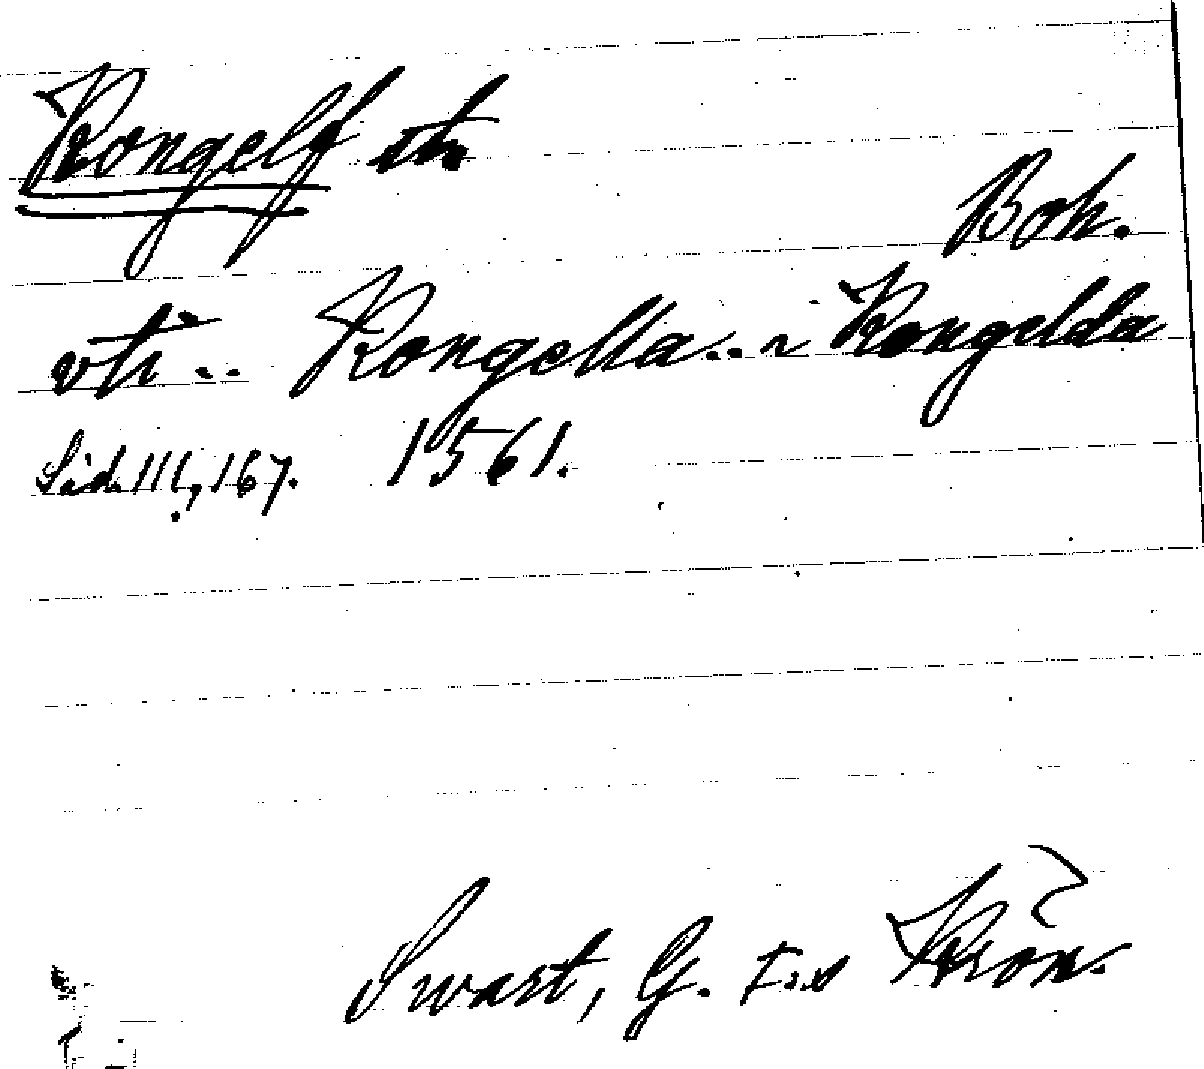 Kongelf sth
Boh.
vti .. Kongella .. i Kongelda
Sid. III, 167. 1561.
Swart, G. I:s Krön.